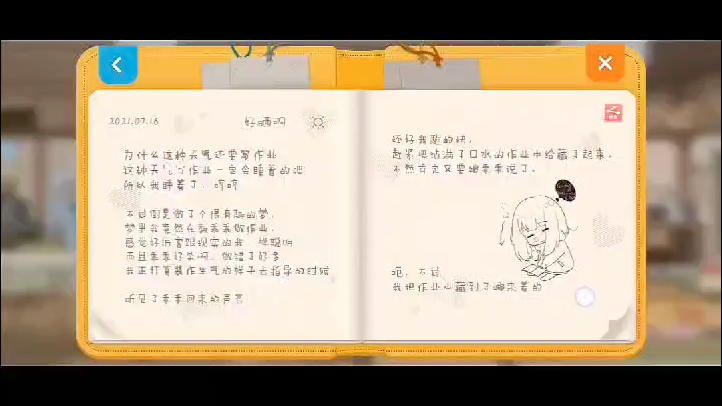 2021.07.16 好晒啊
为什么这种天气还要写作业
这种天 写作业一定会睡着的吧
所以我睡着了，哼哼
不过倒是做了个很有趣的梦，
梦里我竟然在教 做作业，
感觉好厉害跟现实的我一样聪明
而且 好笨啊，做错了好多
我正打算装作生气的样子去指导的时候
听见了 回来的声音
还好我醒的快，
赶紧把沾满了口水的作业本给藏了起来，
不然肯定又要被 说了。
呃，不过
我把作业 藏到了哪来着的